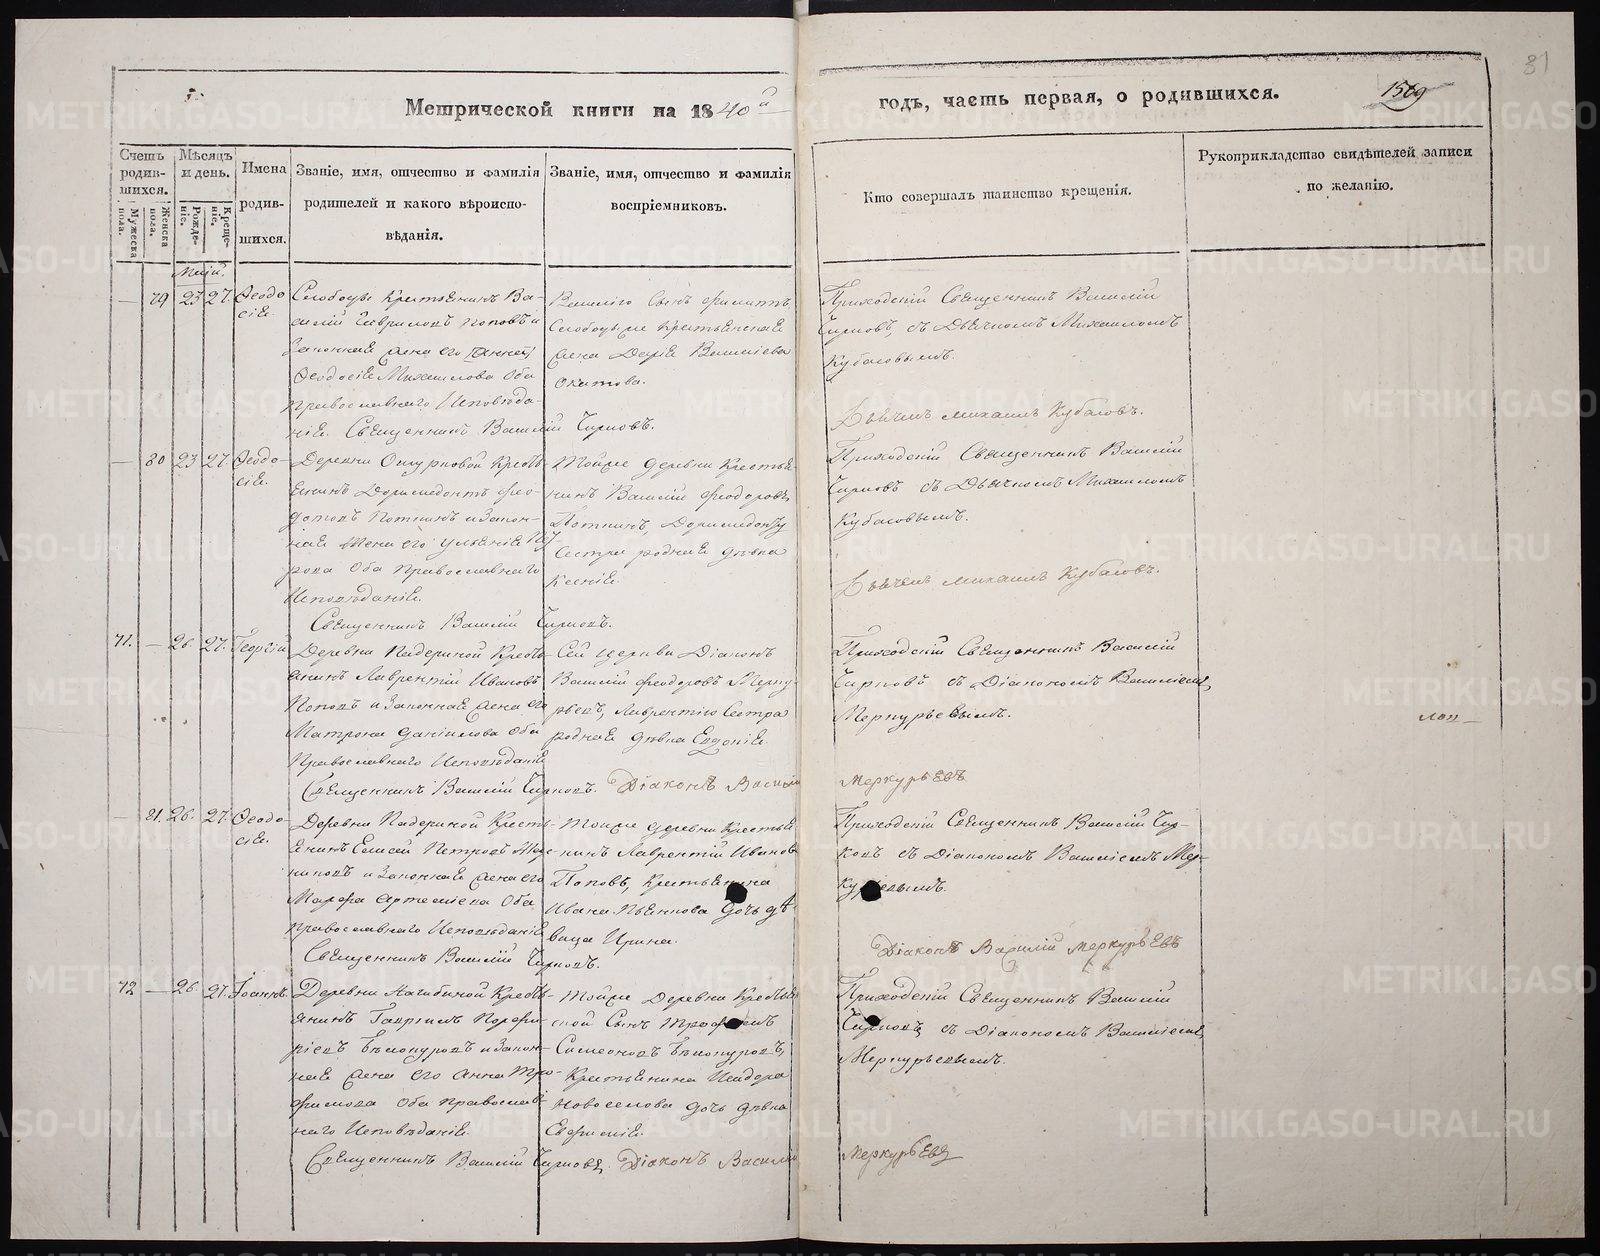 Метрической книги на 1840й
годъ, часть первая, о родившихся.
1569
81
Счетъ родившихся.
Мужеска пола.
Женска пола.
Мѣсяцъ и день.
Рожденіе.
Крещеніе.
Имена родившихся.
Званіе, имя, отчество и фамилія
родителей и какого вѣроиспо-
вѣданія.
Званіе, имя, отчество и фамилія
воспріемниковъ.
Кто совершалъ таинство крещенія.
Рукоприкладство свидѣтелей записи
по желанію.
Маій.
— 79 23 27. Ѳеодо-
сія.
Слободы Крестьянинъ Ва-
силій Гавриловъ Поповъ и
Законная жена его
Ѳеодосія Михаилова Оба
православнаго Исповѣда-
нія. Священникъ Василій Чирковъ.
Слободы же Крестьянская
жена Дарія Василіева
Приходскій Священникъ Василій
Чирковъ, съ Дьячкомъ Михаиломъ
Кубасовымъ.
Дьячекъ Михаилъ Кубасовъ.
— 80 23 27 Ѳеодо-
сія.
Деревни Крестья-
янинъ Доримедонтъ Ѳео-
дотовъ и Закон-
ная Жена его Уліянія
Оба православнаго
Исповѣданія.
Священникъ Василій Чирковъ.
Тойже деревни Крестья-
нинъ Василій Ѳеодоровъ
Доримедонту
Сестра родная дѣвка
Ксенія.
Приходскій Священникъ Василій
Чирковъ съ Дьячкомъ Михаиломъ
Кубасовымъ.
Дьячекъ Михаилъ Кубасовъ.
71. — 26. 27. Георгій
Деревни Падериной Кресть-
янинъ Лаврентій Ивановъ
Поповъ и Законная жена его
Матрона Даніилова Оба
Православнаго Исповѣданія
Священникъ Василій Чирковъ. Діаконъ Василій
Сей церкви Діаконъ
Василій Ѳеодоровъ Мерку-
рьевъ, Лаврентію Сестра
родная дѣвка Евдокія.
Приходскій Священникъ Василій
Чирковъ съ Діакономъ Василіемъ
Меркурьевымъ.
Меркурьевъ
— 81. 26. 27. Ѳеодо-
сія.
Деревни Падериной Кресть-
янинъ Елисей Петровъ
и Законная жена его
Марѳа Артеміева Оба
православнаго Исповѣданія
Священникъ Василій Чирковъ.
Тойже деревни Крестья-
нинъ Лаврентій Ивановъ
Поповъ, Крестьянина
Ивана Пьянкова дочь дѣ-
вица Ирина.
Приходскій Священникъ Василій Чир-
ковъ съ Діакономъ Василіемъ Мер-
курьевымъ.
Діаконъ Василій Меркурьевъ
72 — 26. 27. Іоаннъ.
Деревни Нагибиной Кресть-
янинъ Гавріилъ Порфи-
ріевъ Бѣлокуровъ и Закон-
ная жена его Анна Тро-
фимова Оба православ-
наго Исповѣданія.
Священникъ Василій Чирковъ. Діаконъ Василій
Тойже Деревни Крестьян-
ской Сынъ Трофимъ
Симеоновъ Бѣлокуровъ,
Крестьянина Исидора
Новоселова дочь дѣвка
Евфимія.
Приходскій Священникъ Василій
Чирковъ, съ Діакономъ Василіемъ
Меркурьевымъ.
Меркурьевъ